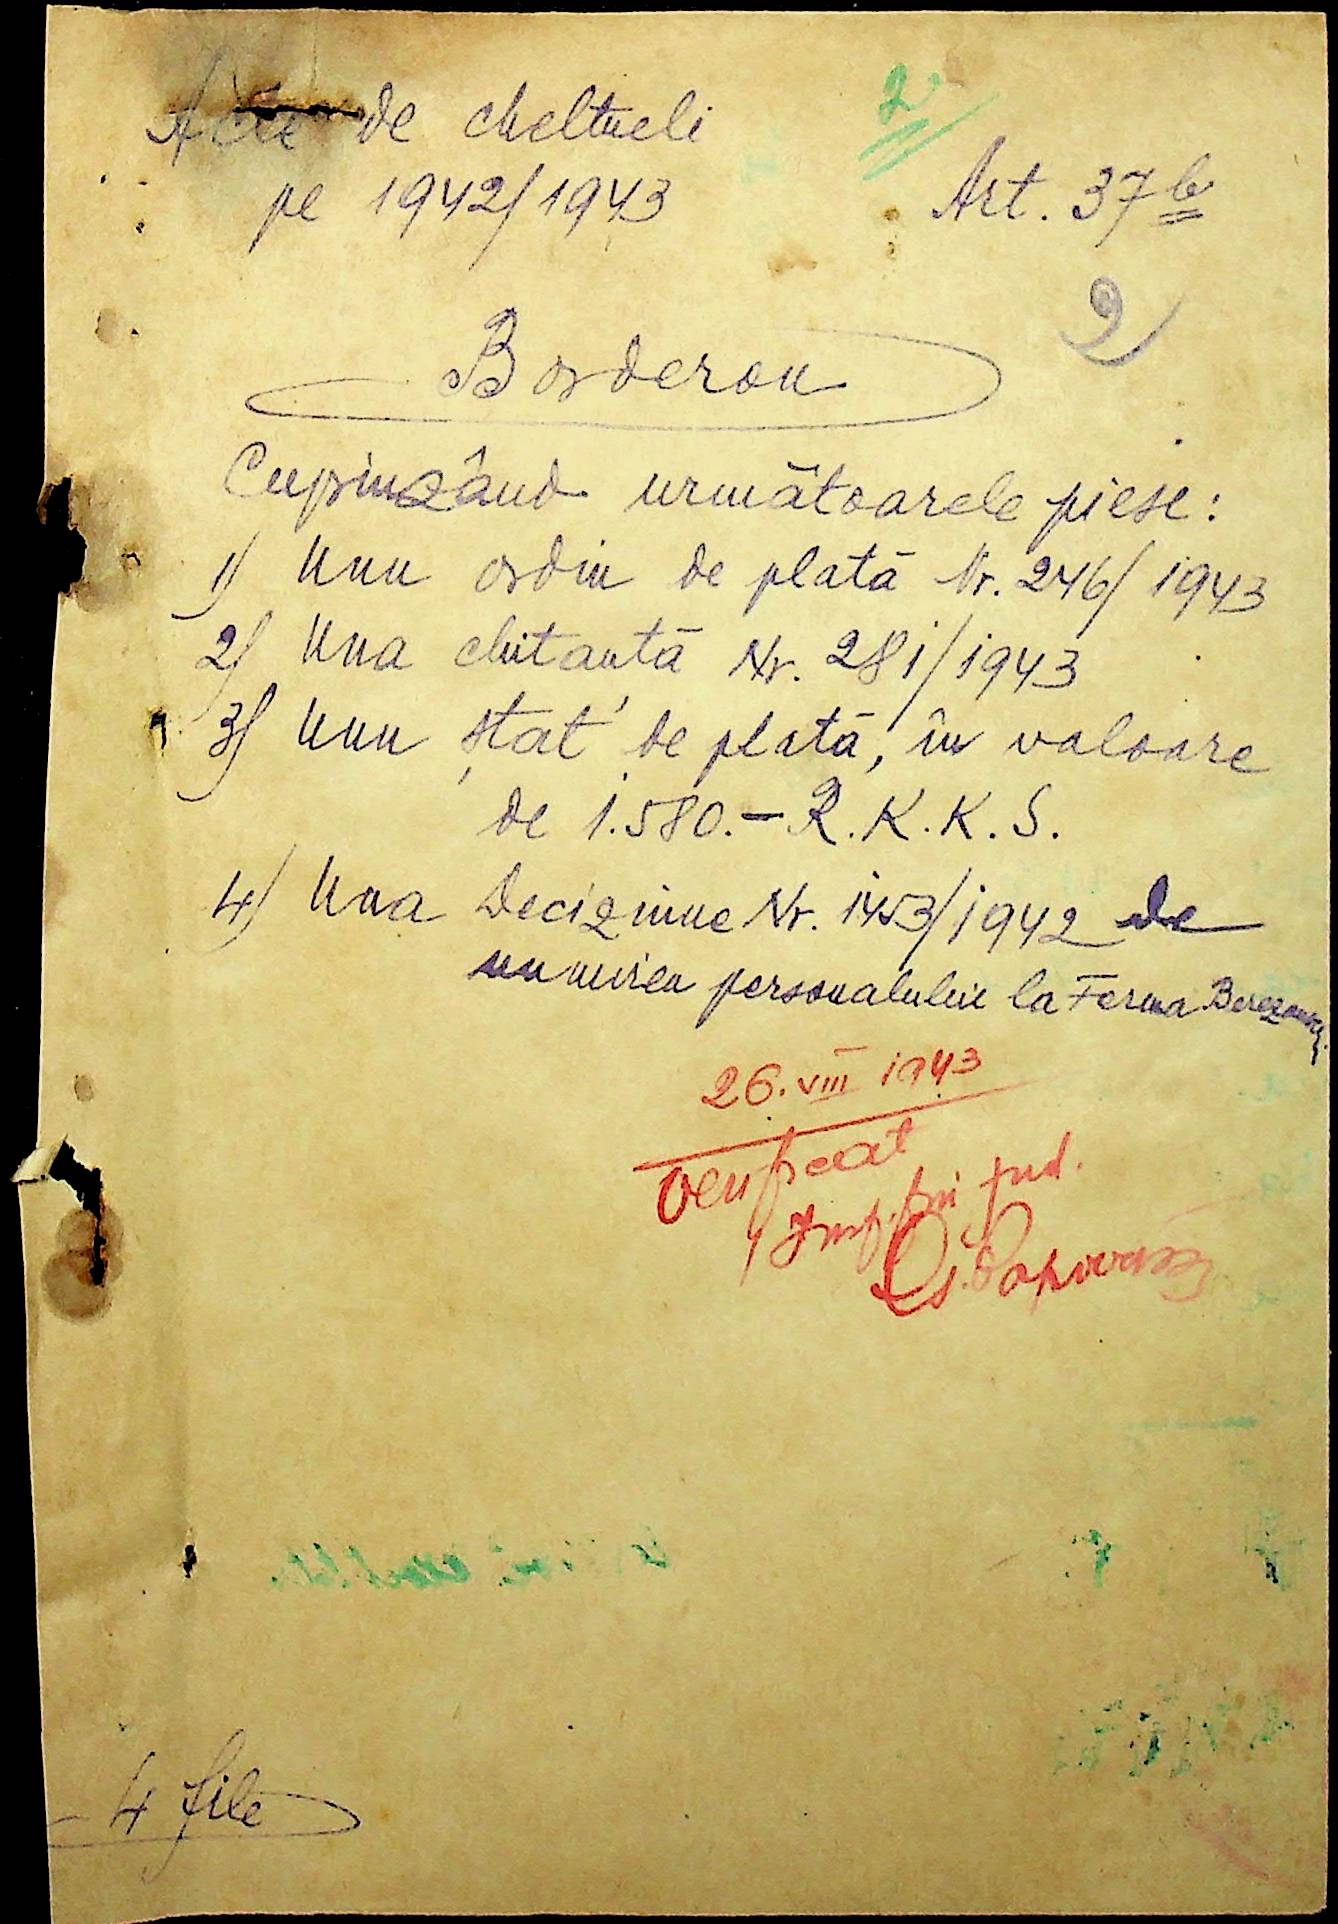 2
Acte de cheltueli
pe 1942/1943
Art. 37 b
2
Borderou
Cuprinzând următoarele piese:
1) Unu ordin de plată Nr. 246/1943
2) Una chitanță Nr. 281/1943
3) Unu ștat de plată, în valoare
de 1.580.- R.K.K.S.
4) Una Deciziune Nr. 1453/1942 de
numirea personalului la Ferma
26.VIII 1943
Verificat
jud.
4 file